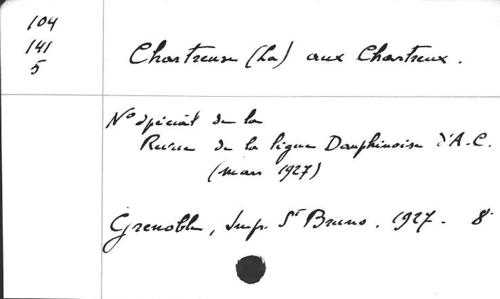 104
141
5
Chartreuse (La) aux Chartreux.
N° spécial de la
Revue de la ligue Dauphinoise d'A.C.
(mars 1927)
Grenoble, Imp. St Bruno. 1927. 8°